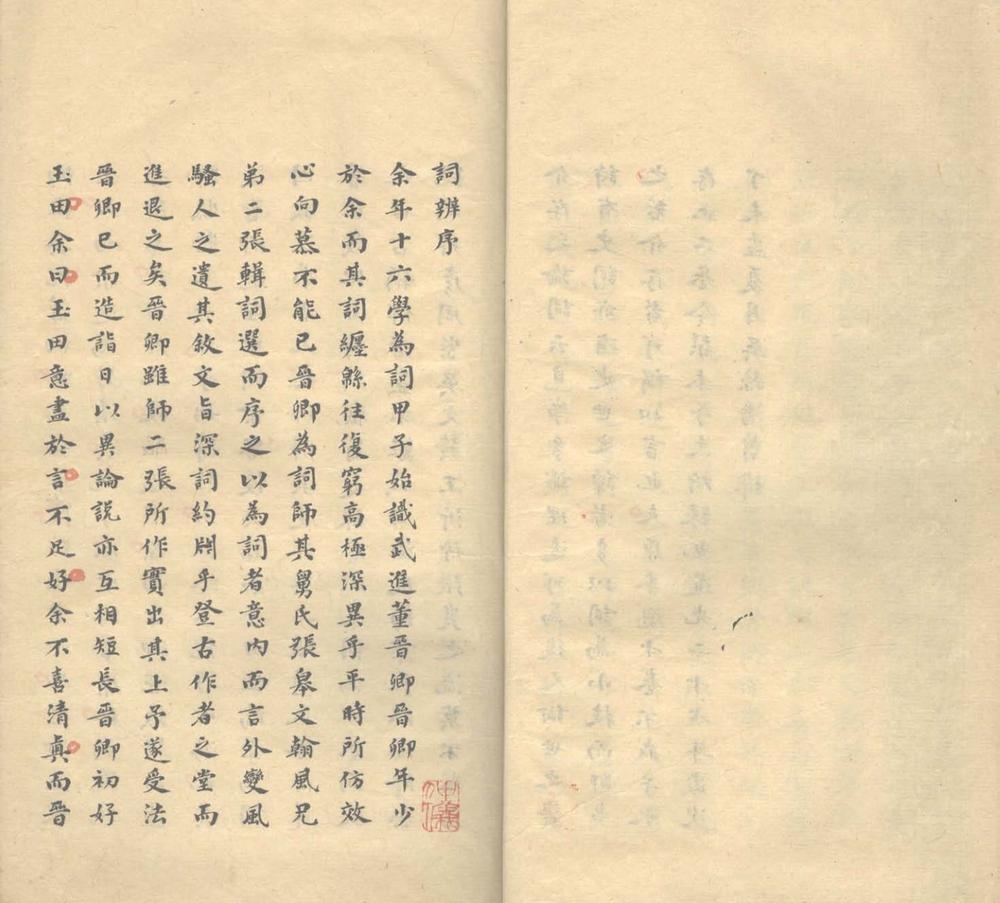 詞辨序
余年十六學為詞甲子始識武進董晉卿晉卿年少
於余而其詞纏緜往復窮高極深異乎平時所仿效
心向慕不能已晉卿為詞師其舅氏張皋文翰風兄
弟二張輯詞選而序之以為詞者意內而言外變風
騷人之遺其敘文旨深詞約閎乎登古作者之堂而
進退之矣晉卿雖師二張所作實出其上予遂受法
晉卿已而造詣日以異論說亦互相短長晉卿初好
玉田余曰玉田意盡於言不足好余不喜清真而晉